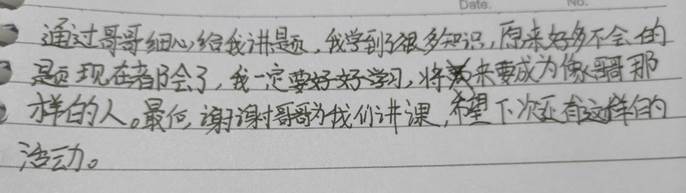 Date.
No.
通过哥哥细心给我讲题，我学到了很多知识，原来好多不会的
题现在都会了，我一定要好好学习，将来要成为像哥哥那
样的人。最何，谢谢哥哥为我们讲课，希望下次还有这样的
活动。